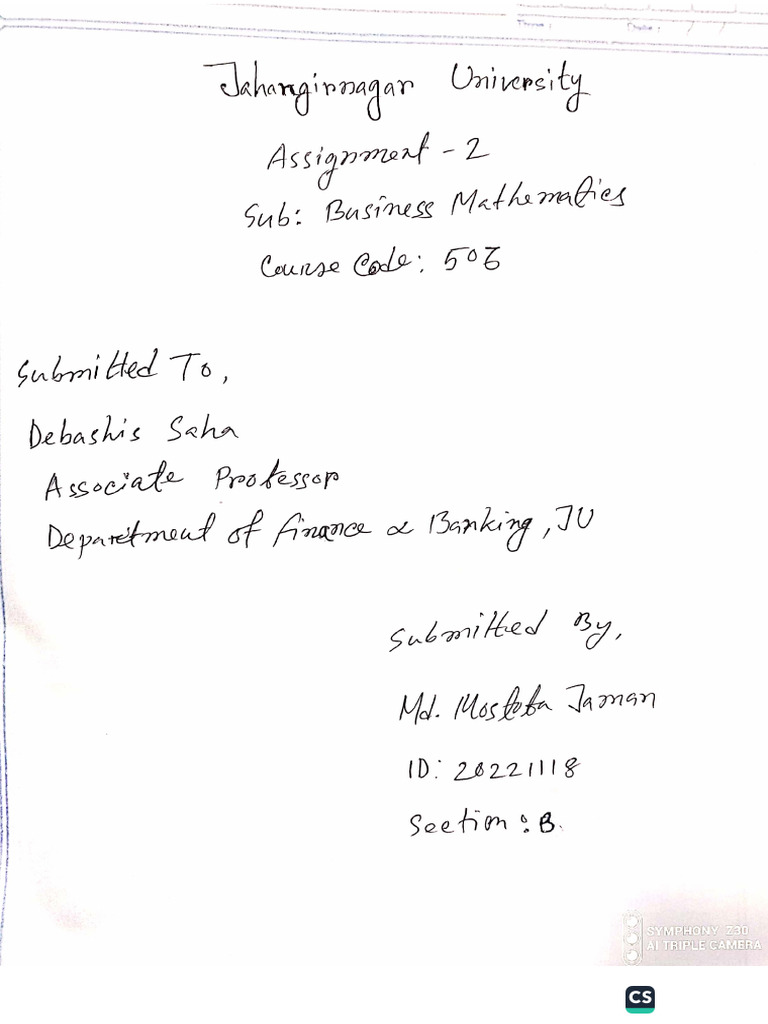 Date: / /
Jahangirnagar University
Assignment - 2
Sub: Business Mathematics
Course Code: 506
Submitted To,
Debashis Saha
Associate Professor
Department of finance & Banking, JU
Submitted By,
Md. Mostofa Jaman
ID: 20221118
Section: B.
SYMPHONY Z30
AI TRIPLE CAMERA
CS